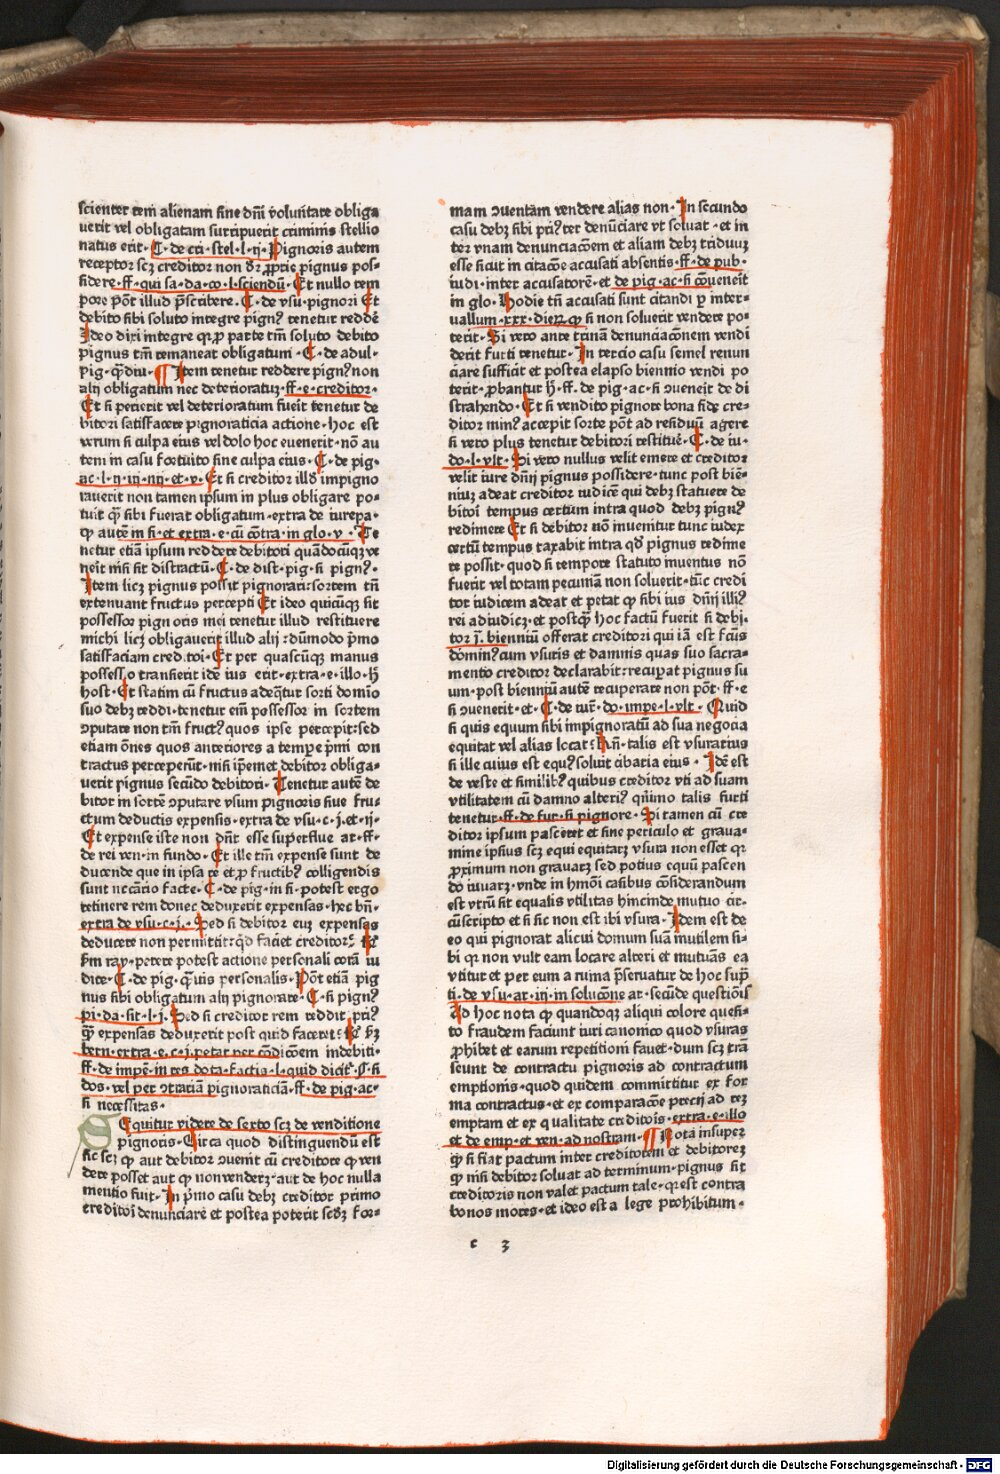 scienter rem alienam sine dñi volũtate obliga
uerit vel obligatam surripuerit criminis stellio
natus erit. C. de cri. stel. l. ij. Pignoris autem
receptor scꝫ creditor non dr̃ ꝓprie pignus pos-
sidere. ff. qui sa. da. co. l. sciendũ. Et nullo tem
pore põt illud p̃scribere. C. de vsu. pignori Et
debito sibi soluto integre pignꝰ tenetur reddẽ
Ideo dixi integre qꝛ ꝓ parte tm̃ soluto debito
pignus tm̃ remaneat obligatum. C. de adul.
pig. q̃diu. ¶ Item tenetur reddere pignꝰ non
alij obligatum nec deterioratuꝫ. ff. e. creditor.
Et si perierit vel deterioratum fueit tenetur de
bitori satisfacere pignoraticia actione. hoc est
verum si culpa eius vel dolo hoc euenerit. nõ au
tem in casu fortuito sine culpa eius. C. de pig.
ac. l. ij. iij. iiij. et. v. Et si creditor illď impigno
rauerit non tamen ipsum in plus obligare po-
tuit q̃ sibi fuerat obligatum. extra de iureyla.
qꝫ autẽ in si. et extra. e. cũ cõtra. in glo. v. Te
netur etiã ipsum reddere debitori quãdocũqꝫ ve
neit nisi sit distractũ. C. de dist. pig. si pignꝰ.
Item licꝫ pignus possit pignorari: sortem tñ
extenuant fructus percepti Et ideo quicũqꝫ sit
possessor pignoris mei tenetur illud restituere
michi licꝫ obligauerit illud alij: dũmodo p̃mo
satisfaciam creditoi. Et per quascũqꝫ manus
possessio transierit idẽ ius erit. extra. e. illo. ħ
host. Et statim cũ fructus adeq̃tur sorti domio
suo debꝫ reddi. tenetur em̃ possessor in sortem
ↄputare non tm̃ fructꝰ quos ipse percepit: sed
etiam õnes quos anteriores a tempe p̃mi con
tractus perceperũt. nisi ip̃emet debitor obliga-
uerit pignus secũdo debitori. Tenetur autẽ de
bitor in sortẽ ↄputare vsum pignoris siue fru-
ctum deductis expensis. extra de vsu. c. j. et. ij.
Et expense iste non dñt esse superflue ar. ff.
de rei ven. in fundo. Et ille tm̃ expense sunt de
ducende que in ipsa re et ꝓ fructibꝰ colligendis
sunt necãrio facte. C. de pig. in si. potest ergo
retinere rem donec deduxerit expensas. hec bñ.
extra de vsu. c. j. Sed si debitor euꝫ expensas
deducere non permittit: qď faciet creditor? R̃
ſm ray. petere potest actione personali corã iu
dice. C. de pig. q̃uis personalis. Põt etiã pig
nus sibi obligatum alij pignorare. C. si pignꝰ
pi. da. sit. l. j. Sed si creditor rem reddit. priꝰ
q̃ expensas deduxerit post quid faceret? R̃ ſꝫ
bern. extra. e. c. j. petat per cõdicõem indebiti.
ff. de impẽ. in res dota. factis. l. quid dicit̃. §. si
dos. vel per ↄtrariã pignoraticiã. ff. de pig. ac.
si necessitas.
Sequitur videre de sexto scꝫ de venditione
pignoris. Circa quod distinguendũ est
sic scꝫ qꝫ aut debitor ↄuenit cũ creditore qꝫ ven
dere posset aut qꝫ non venderꝫ. aut de hoc nulla
mentio fuit. In p̃mo casu debꝫ creditor primo
creditoi denunciare et postea poterit scďꝫ for-
mam ↄuentam vendere alias non. In secundo
casu debꝫ sibi priꝰ ter denũciare vt soluat. et in
ter vnam denunciacõem et aliam debꝫ triduuꝫ
esse sicut in citacõe accusati absentis. ff. de pub.
iudi. inter accusatorẽ. et de pig. ac. si cõueneit
in glo. Hodie tñ accusati sunt citandi ꝑ inter-
uallum. xxx. dieꝝ qꝫ si non soluerit vendere po-
terit. Si vero ante trinã denunciacõnem vendi
derit furti tenetur. In tercio casu semel renun
ciare sufficit et postea elapso biennio vendi po
terit. ꝓbantur ħ. ff. de pig. ac. si ↄueneit de di
strahendo. Et si vendito pignore bona fide cre-
ditor minꝰ accepit sorte põt ad residuũ agere
si vero plus tenetur debitori restituẽ. C. de iu-
do. l. vlt. Si vero nullus velit emere et creditor
velit iure dñij pignus possidere. tunc post biẽ-
niuꝫ adeat creditor iudicẽ qui debꝫ statuere de
bitoi tempus certum intra quod debꝫ pignꝰ
redimere Et si debitor nõ inuenitur tunc iudex
certũ tempus taxabit intra qď pignus redime
re possit. quod si tempore statuto inuentus nõ
fuerit vel totam pecuniã non soluerit. tũc credi
tor iudicem adeat et petat qꝫ sibi ius dñij illiꝰ
rei adiudicꝫ. et postq̃ hoc factũ fuerit si debi-
tor j. bienniũ offerat creditori qui iã est fc̃us
dominꝰ cum vsuris et damnis quas suo sacra-
mento creditor declarabit: recuꝑat pignus su
um. post bienniũ autẽ recuperare non põt. ff. e
si ↄuenerit. et. C. de iur̃. do. impe. l. vlt. Quid
si quis equum sibi impignoratũ ad sua negocia
equitat vel alias locat? R̃. talis est vsurarius
si ille cuius est equꝰ soluit cibaria eius. Idẽ est
de veste et similibꝰ quibus creditor vti ad suam
vtilitatem cũ damno alteriꝰ q̃nimo talis furti
tenetur. ff. de fur. si pignore. Si tamen cũ cre
ditor ipsum pasceret et sine periculo et graua-
mine ipsius scꝫ equi equitarꝫ vsura non esset qꝛ
ꝓximum non grauarꝫ sed potius equũ pascen
do iuuarꝫ. vnde in hmõi casibus cõsiderandum
est vtrũ sit equalis vtilitas hincinde mutuo cir-
cũscripto et si sic non est ibi vsura. Idem est de
eo qui pignorat alicui domum suã inutilem si-
bi qꝛ non vult eam locare alteri et mutuãs ea
vtitur et per eum a ruina p̃seruatur de hoc sup̃
ti. de vsu. ar. iij. in solucõne ar. secũde questiõis
Ad hoc nota qꝫ quandoqꝫ aliqui colore quesi-
to fraudem faciunt iuri canonico quod vsuras
ꝓhibet et earum repetitioni fauet. dum scꝫ trã
seunt de contractu pignoris ad contractum
emptionis. quod quidem committitur ex for
ma contractus. et ex comparacõe precij ad reꝫ
emptam et ex qualitate creditoris. extra. e. illo
et de emp. et ven. ad nostram. ¶ Nota insuper
qꝫ si fiat pactum inter creditorem et debitoreꝫ
qꝫ nisi debitor soluat ad terminum. pignus sit
creditoris non valet pactum tale. qꝛ est contra
bonos mores. et ideo est a lege prohibitum.
c 3
Digitalisierung gefördert durch die Deutsche Forschungsgemeinschaft - DFG